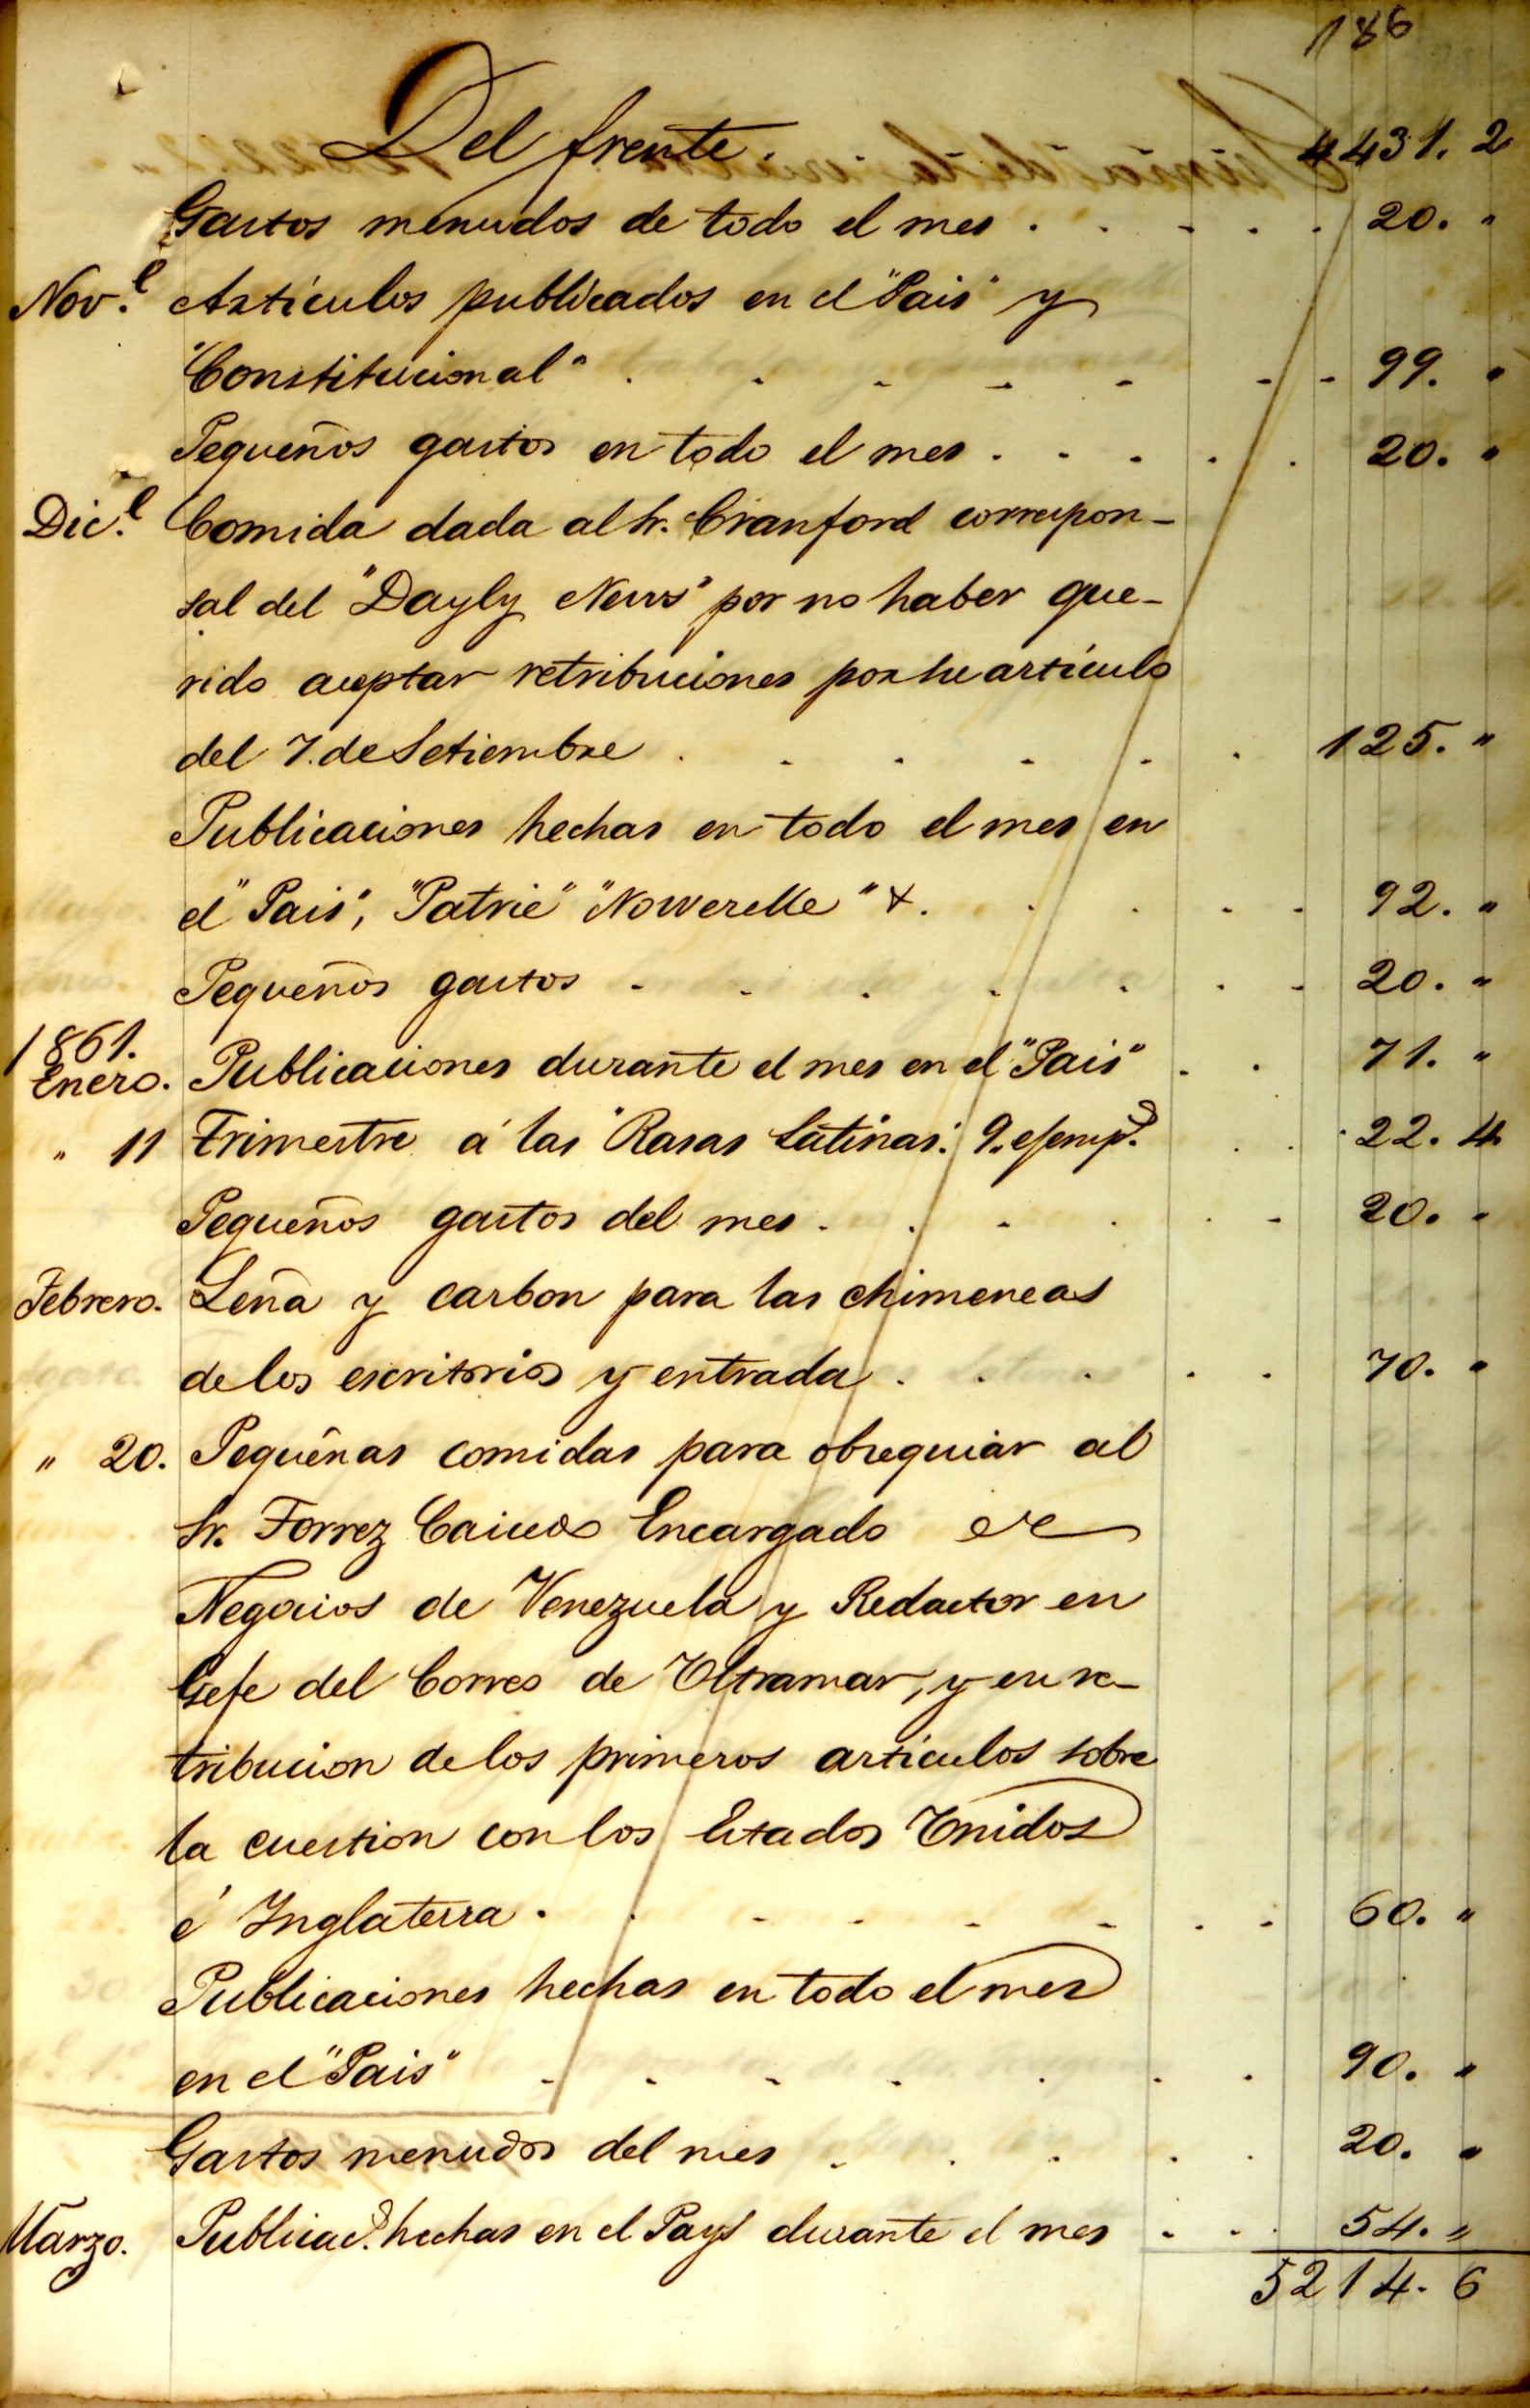 186
Del frente. 4431. 2
Gastos menudos de todo el mes . . . . . 20. "
Nov.e Artículos publicados en el "Pais" y
"Constitucional" . . - - - - - 99. "
Pequeños gastos en todo el mes . . . . . 20. "
Dic.e Comida dada al Sr. Cranford correspon-
sal del "Dayly News" por no haber que-
rido aceptar retribuciones por su artículo
del 7. de Setiembre . . . . . . 125. "
Publicaciones hechas en todo el mes en
el "Pais", "Patrie" "Nowerelle" &. . . . . 92. "
Pequeños gastos - - . . . . - 20. "
1861.
Enero. Publicaciones durante el mes en el "Pais" . . 71. "
" 11 Trimestre á las "Rasas Latinas". 9. ejemp.s . . 22. 4
Pequeños gastos del mes . . - . . - 20. "
Febrero. Leña y carbon para las chimeneas
de los escritorios y entrada . . . . . 70. "
" 20. Pequeñas comidas para obsequiar al
Sr. Torrez Caicedo Encargado de
Negocios de Venezuela y Redactor en
Gefe del Correo de Ultramar, y en re-
tribucion de los primeros artículos sobre
la cuestion con los Estados Unidos
é Inglaterra . . - - - - . - 60. "
Publicaciones hechas en todo el mes
en el "Pais" - - - - . . . 90. "
Gastos menudos del mes . . . . . 20. "
Marzo. Publicac.s hechas en el Pays durante el mes - - . 54. "
5214. 6